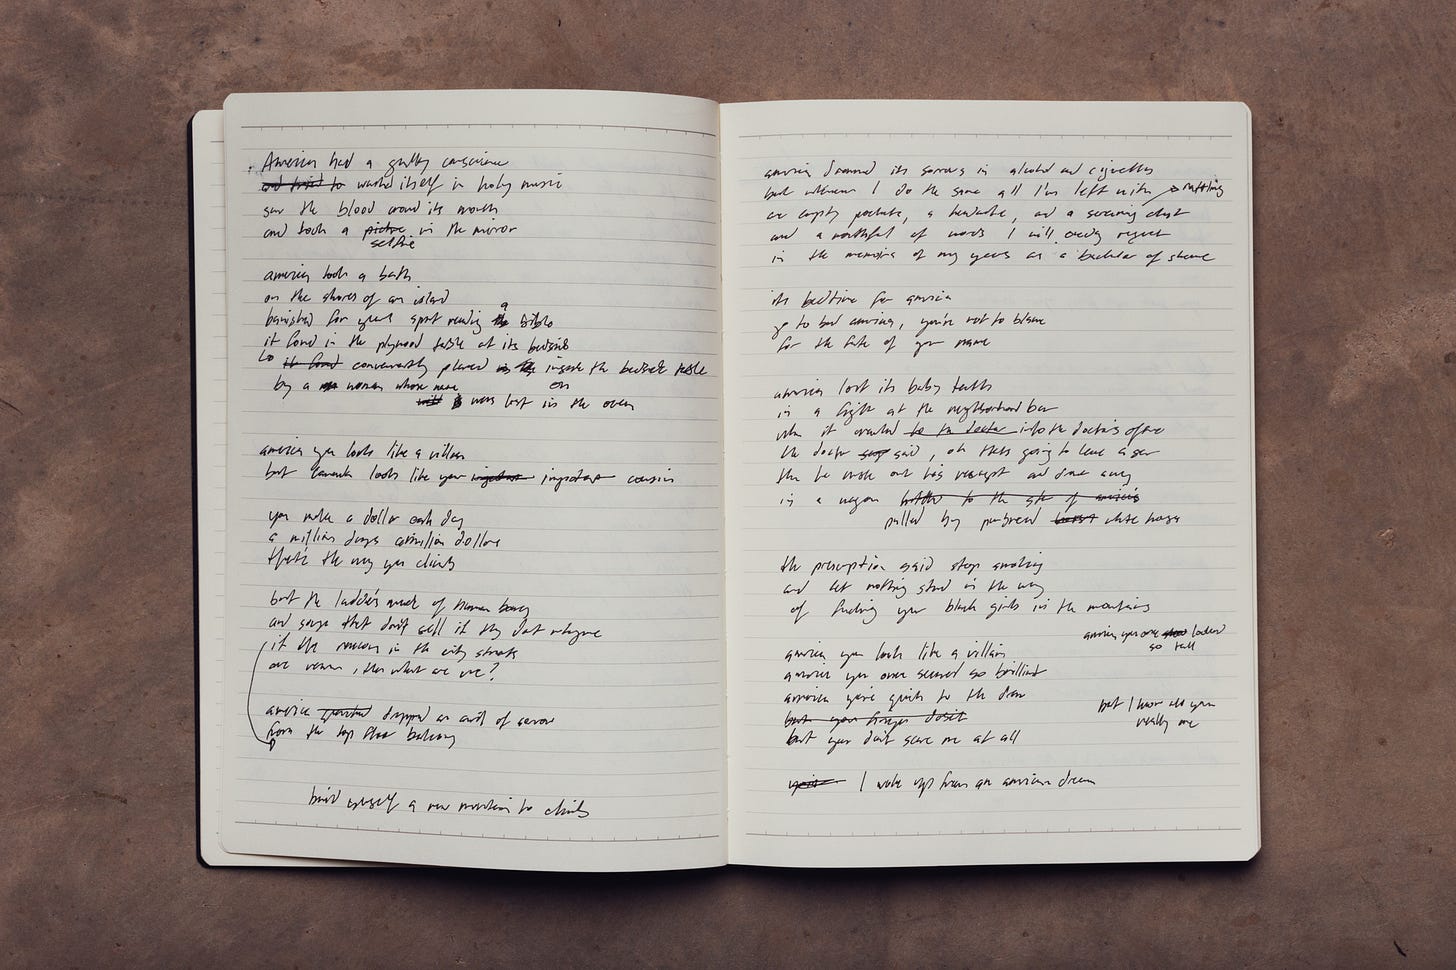 America had a guilty conscience
and tried to washed itself in holy music
saw the blood around its mouth
and took a picture in the mirror
selfie
america took a bath
on the shores of an island
banished for years spent reading the bible
a
it found in the plywood table at its bedside
it found conveniently placed in the inside the bedside table
by a woman whose name
on
was lost in the oven
america you look like a villain
but canada looks like your important important cousin
you make a dollar each day
a million days a million dollars
that's the way you climb
but the ladder's made of human bones
and songs that don't sell if they dont rhyme
if the raccoons in the city streets
are vermin, then what are we?
america dropped an anvil of sorrow
from the top floor balcony
build myself a new mountain to climb
america drowned its sorrows in alcohol and cigarettes
but whenever I do the same all I'm left with rattling
are empty pockets, a headache, and a screaming chest
and a mouthful of words I will only regret
in the memoirs of my years as a bachelor of shame
its bedtime for america
go to bed america, you're not to blame
for the fate of your name
america lost its baby teeth
in a fight at the neighborhood bar
when it crawled to the doctor into the doctor's office
the doctor said, oh thats going to leave a scar
then he wrote out his receipt and drove away
in a wagon hitched to the side of america's
pulled by purebred white horses
the prescription said stop smoking
and let nothing stand in the way
of finding your black girls in the mountains
america you once looked
so tall
america you look like a villain
america you once seemed so brilliant
america you're quick to the draw
but your finger doesn't
but you don't scare me at all
but I know who you
really are
I woke up from an american dream